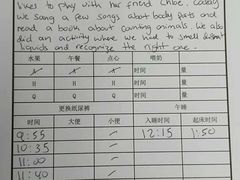 likes to play with her friend Chloe. Today
We sang a few songs about body parts and
read a book about counting animals. We also
did an activity where we had to smell different
liquids and recognize the right one.
水果 午餐 点心 喂奶
时间 量
H H H 时间 量
Q Q Q 时间 量
更换纸尿裤 午睡
时间 大便 小便 入睡时间 起床时间
9:55 / 12:15 1:50
10:35 /
11:00 /
11:40 /